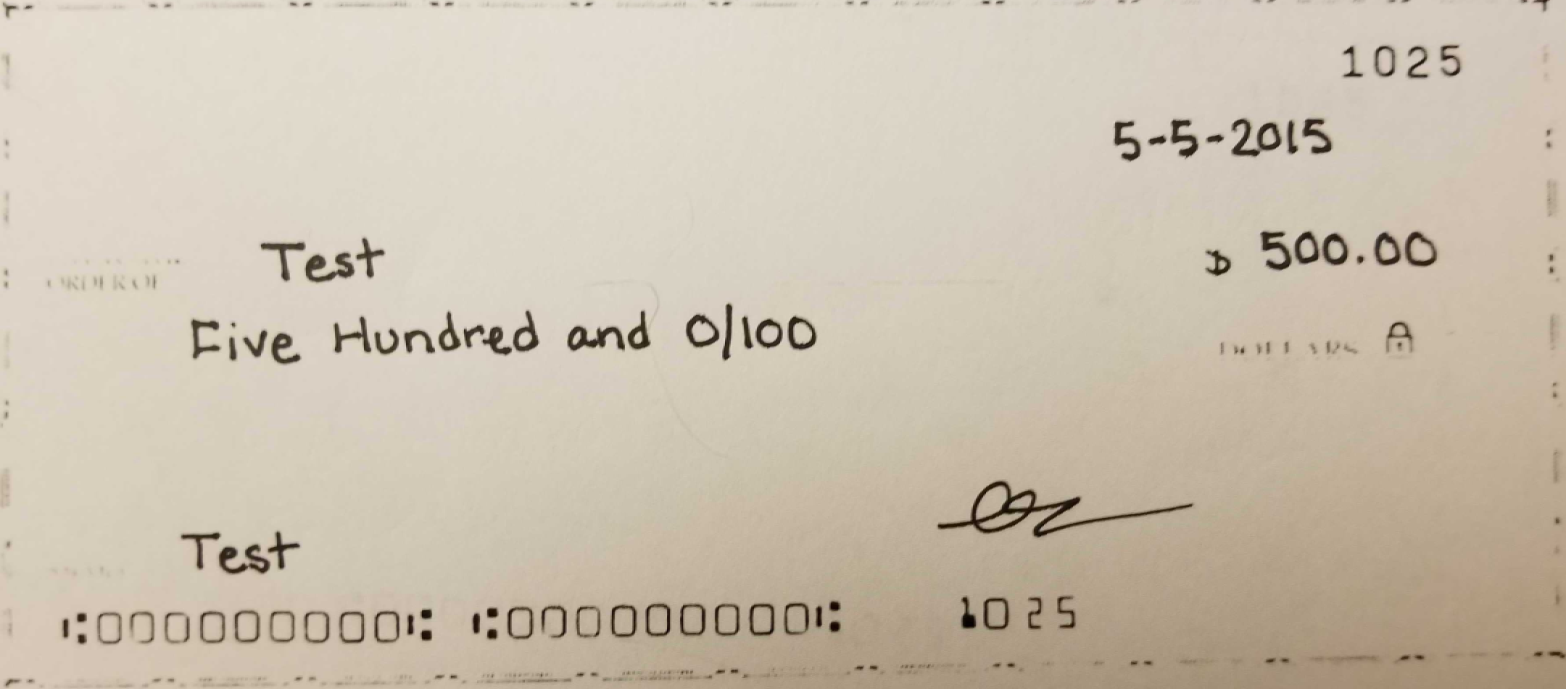 1025
5-5-2015
ORDER OF Test $ 500.00
Five Hundred and 0/100 DOLLARS
Test
⑆000000000⑆ ⑆000000000⑆ 1025